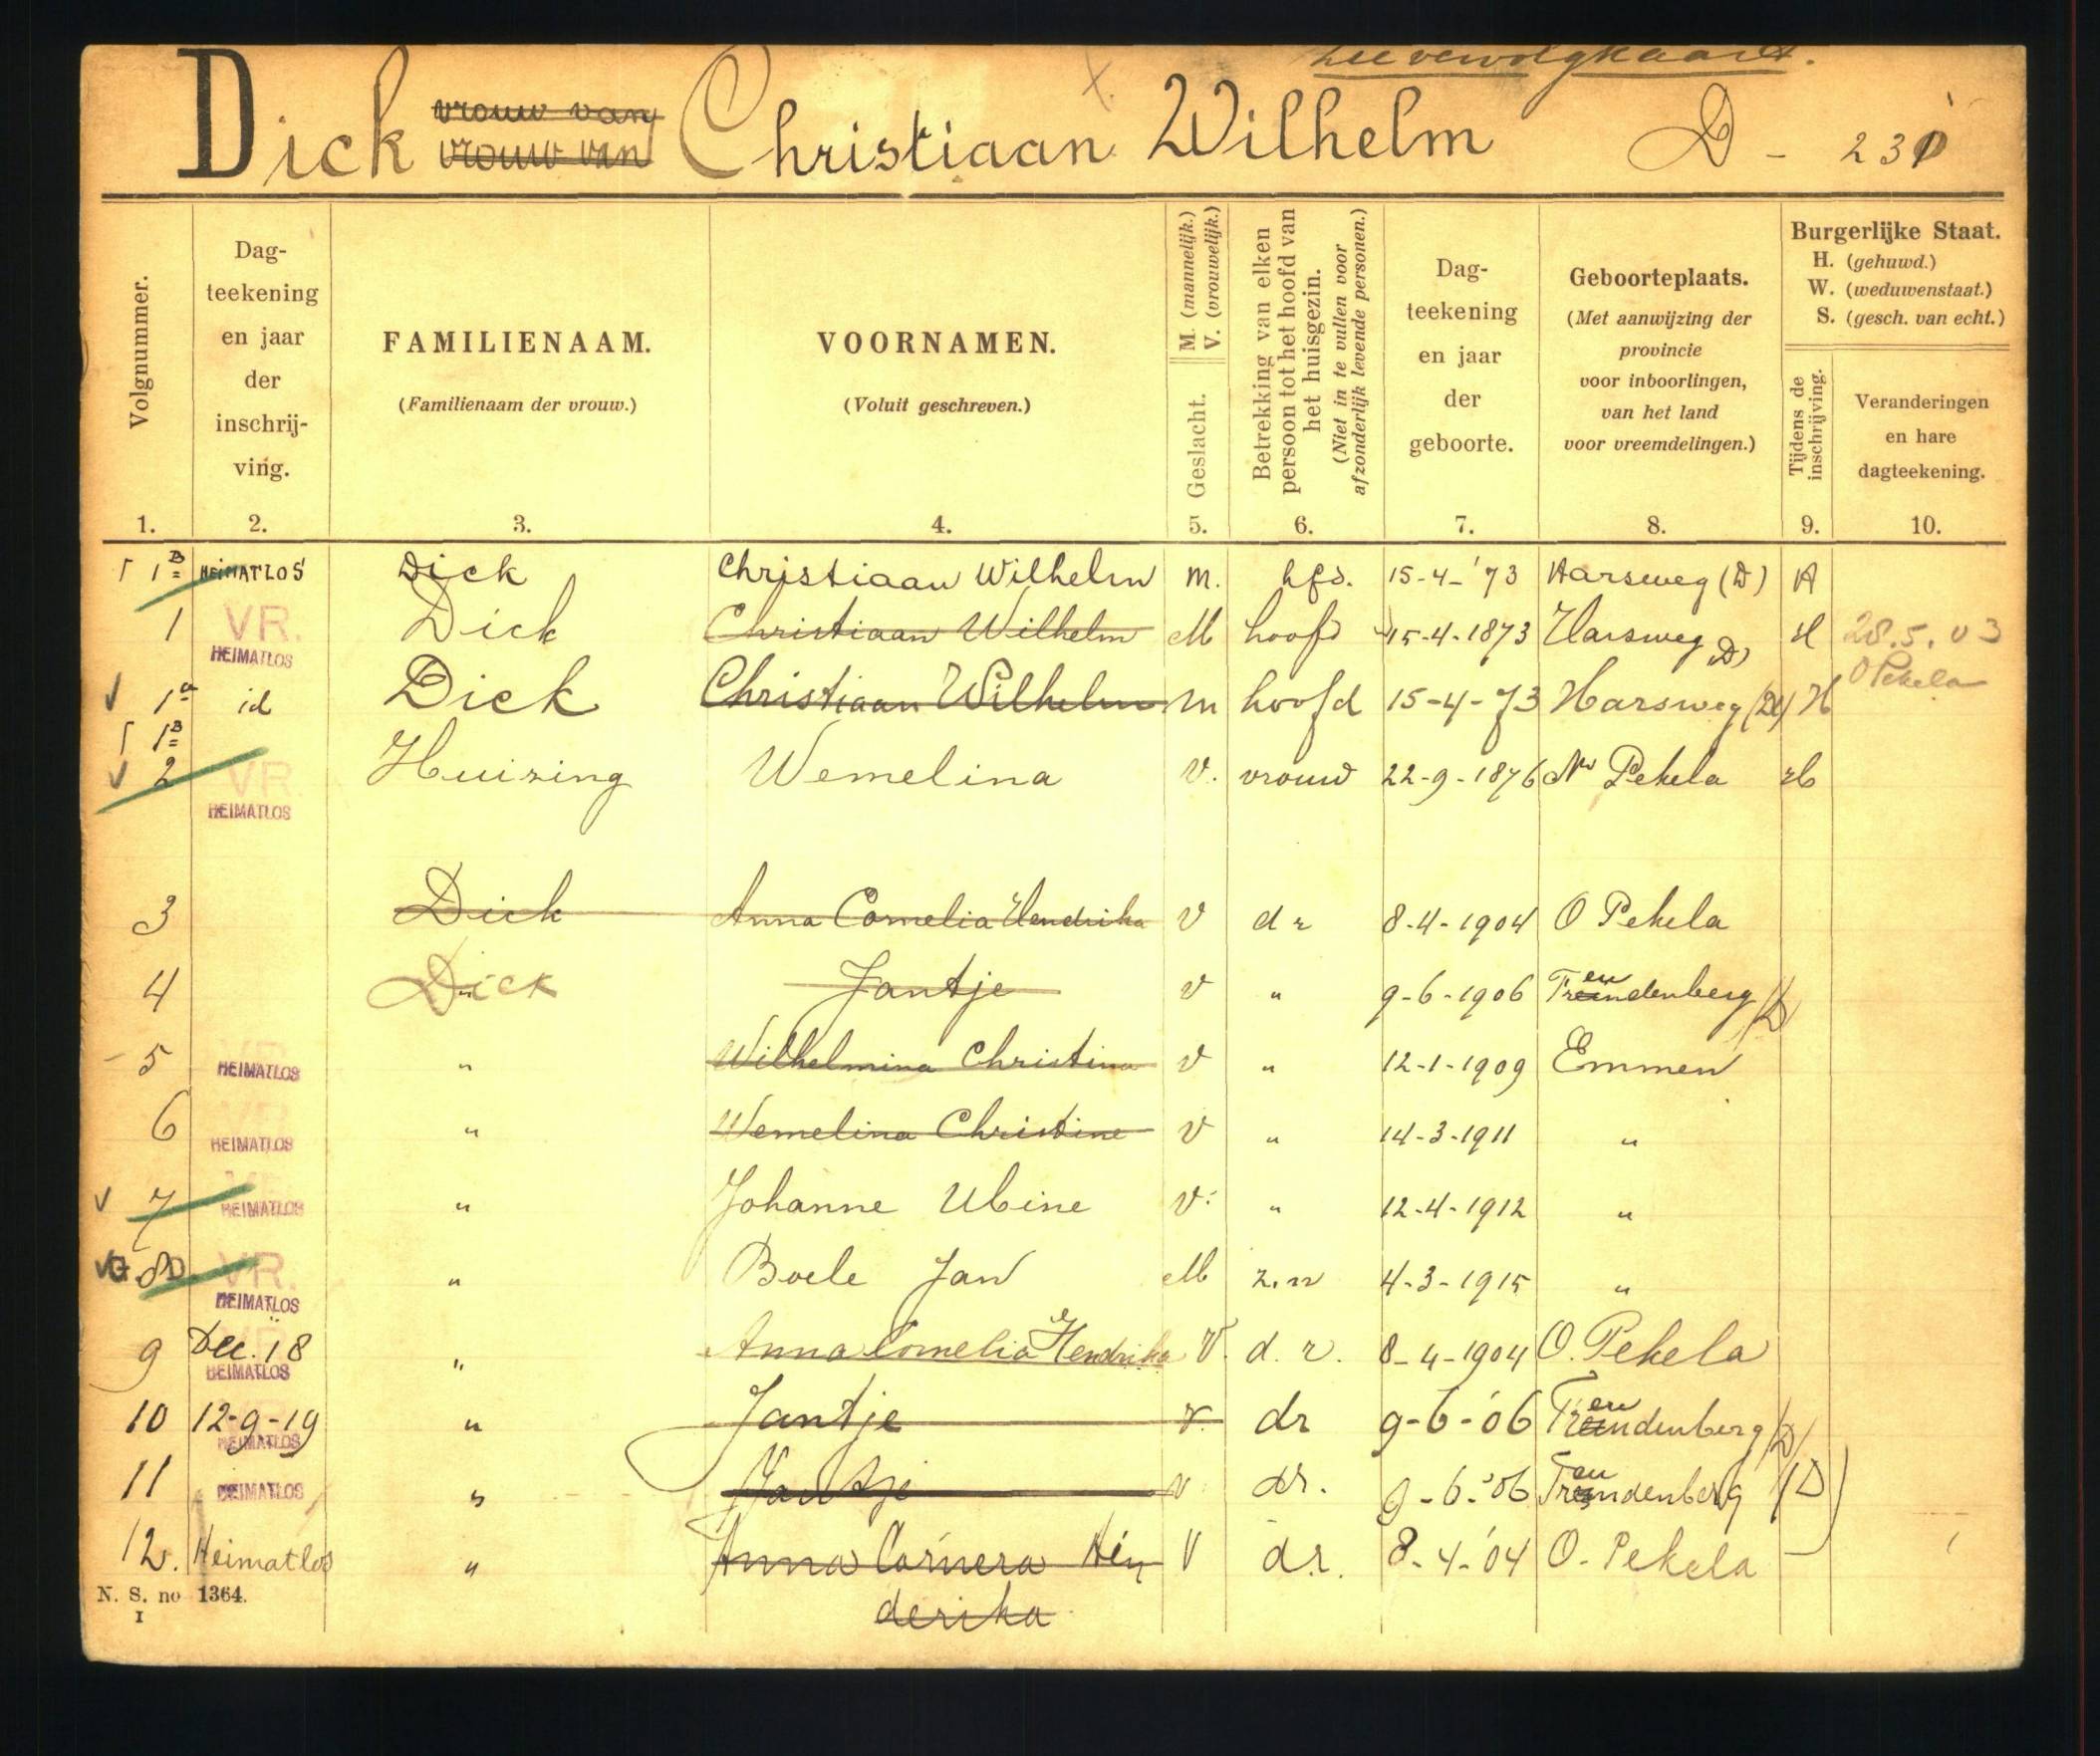 zie vervolgkaart.
Dick vrouw van vrouw van Christiaan Wilhelm D - 231
Volgnummer.
Dag-
teekening
en jaar
der
inschrij-
ving.
FAMILIENAAM.
(Familienaam der vrouw.)
VOORNAMEN.
(Voluit geschreven.)
Geslacht.
M. (mannelijk.)
V. (vrouwelijk.)
Betrekking van elken
persoon tot het hoofd van
het huisgezin.
(Niet in te vullen voor
afzonderlijk levende personen.)
Dag-
teekening
en jaar
der
geboorte.
Geboorteplaats.
(Met aanwijzing der
provincie
voor inboorlingen,
van het land
voor vreemdelingen.)
Burgerlijke Staat.
H. (gehuwd.)
W. (weduwenstaat.)
S. (gesch. van echt.)
Tijdens de
inschrijving.
Veranderingen
en hare
dagteekening.
1. 2. 3. 4. 5. 6. 7. 8. 9. 10.
1B HEIMATLOS Dick Christiaan Wilhelm m. hfd. 15-4-'73 Harsweg (D) H
1 VR. HEIMATLOS Dick Christiaan Wilhelm M hoofd 15-4-1873 Harsweg (D) H 28.5.03
O Pekela
1a id Dick Christiaan Wilhelm m hoofd 15-4-73 Harsweg (D) H
1B
2 VR HEIMATLOS Huizing Wemelina V. vrouw 22-9-1876 Nw Pekela H
3 Dick Anna Cornelia Hendrika V dr 8-4-1904 O Pekela
4 Dick Jantje V " 9-6-1906 Treundenberg (D)
5 VR HEIMATLOS " Wilhelmina Christina V " 12-1-1909 Emmen
6 VR HEIMATLOS " Wemelina Christine V " 14-3-1911 "
7 HEIMATLOS " Johanne Ubine V. " 12-4-1912 "
8 VR. HEIMATLOS " Boele Jan M zn 4-3-1915 "
9 Dec. 18 HEIMATLOS " Anna Cornelia Hendrika V. d.r. 8-4-1904 O. Pekela
10 12-9-19 HEIMATLOS " Jantje v. dr 9-6-'06 Treundenberg (D)
11 HEIMATLOS " Jantje v dr. 9-6-'06 Treundenberg (D)
12. Heimatlos " Anna Cornera Hen V d.r. 8-4-'04 O. Pekela
derika
N. S. no 1364.
I